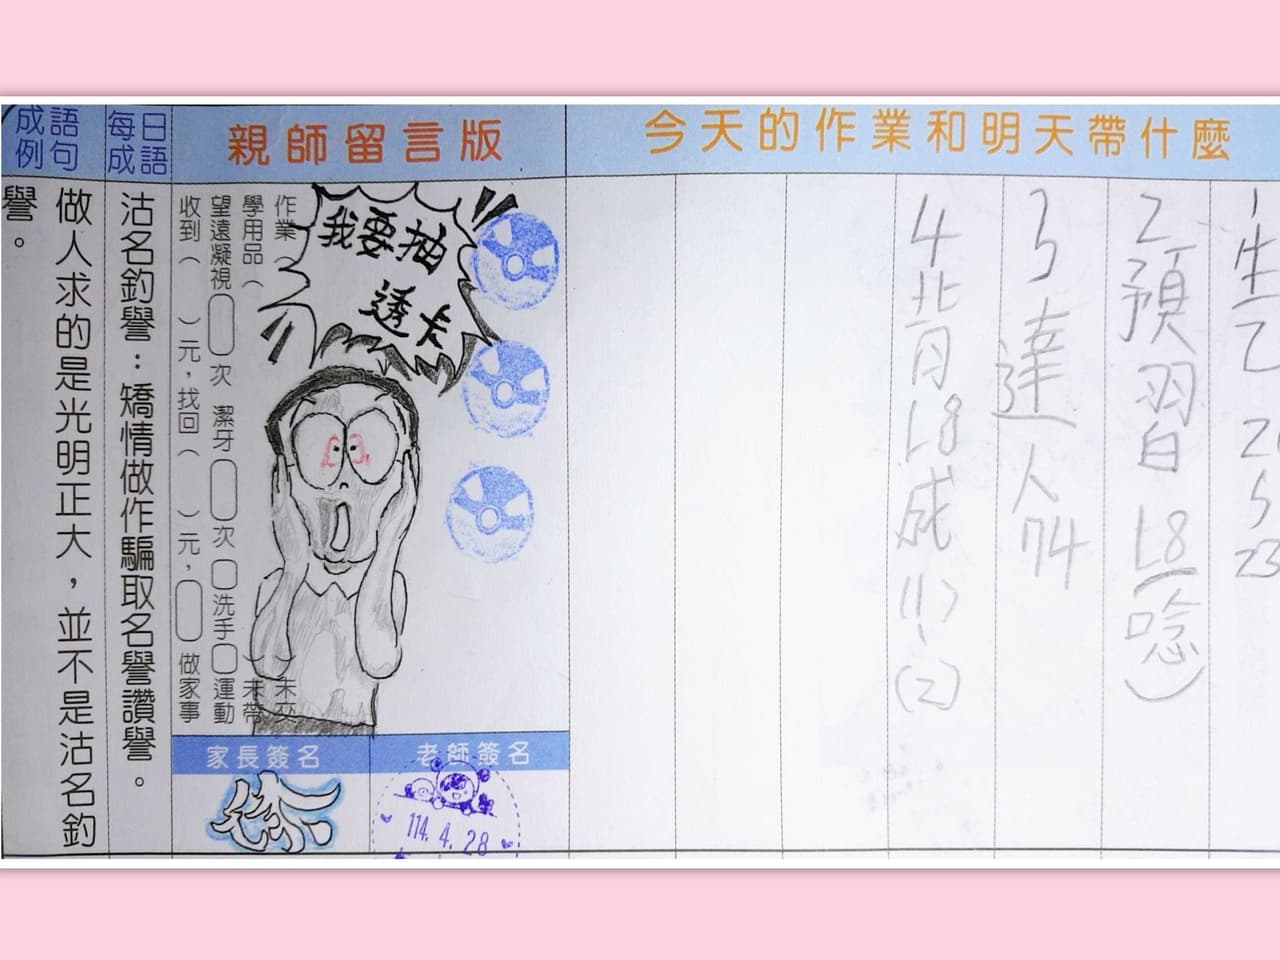 今天的作業和明天帶什麼
1生乙 21 5 23
2預習白18(唸)
3達人74
4背白18成(1)、(2)
親師留言版
我要抽
透卡
作業（ ）未交
學用品（ ）未帶
望遠凝視 次 潔牙 次 洗手 運動
收到（ ）元，找回（ ）元， 做家事
家長簽名
老師簽名
114.4.28
每日成語
沽名釣譽：矯情做作騙取名譽讚譽。
成語例句
做人求的是光明正大，並不是沽名釣
譽。